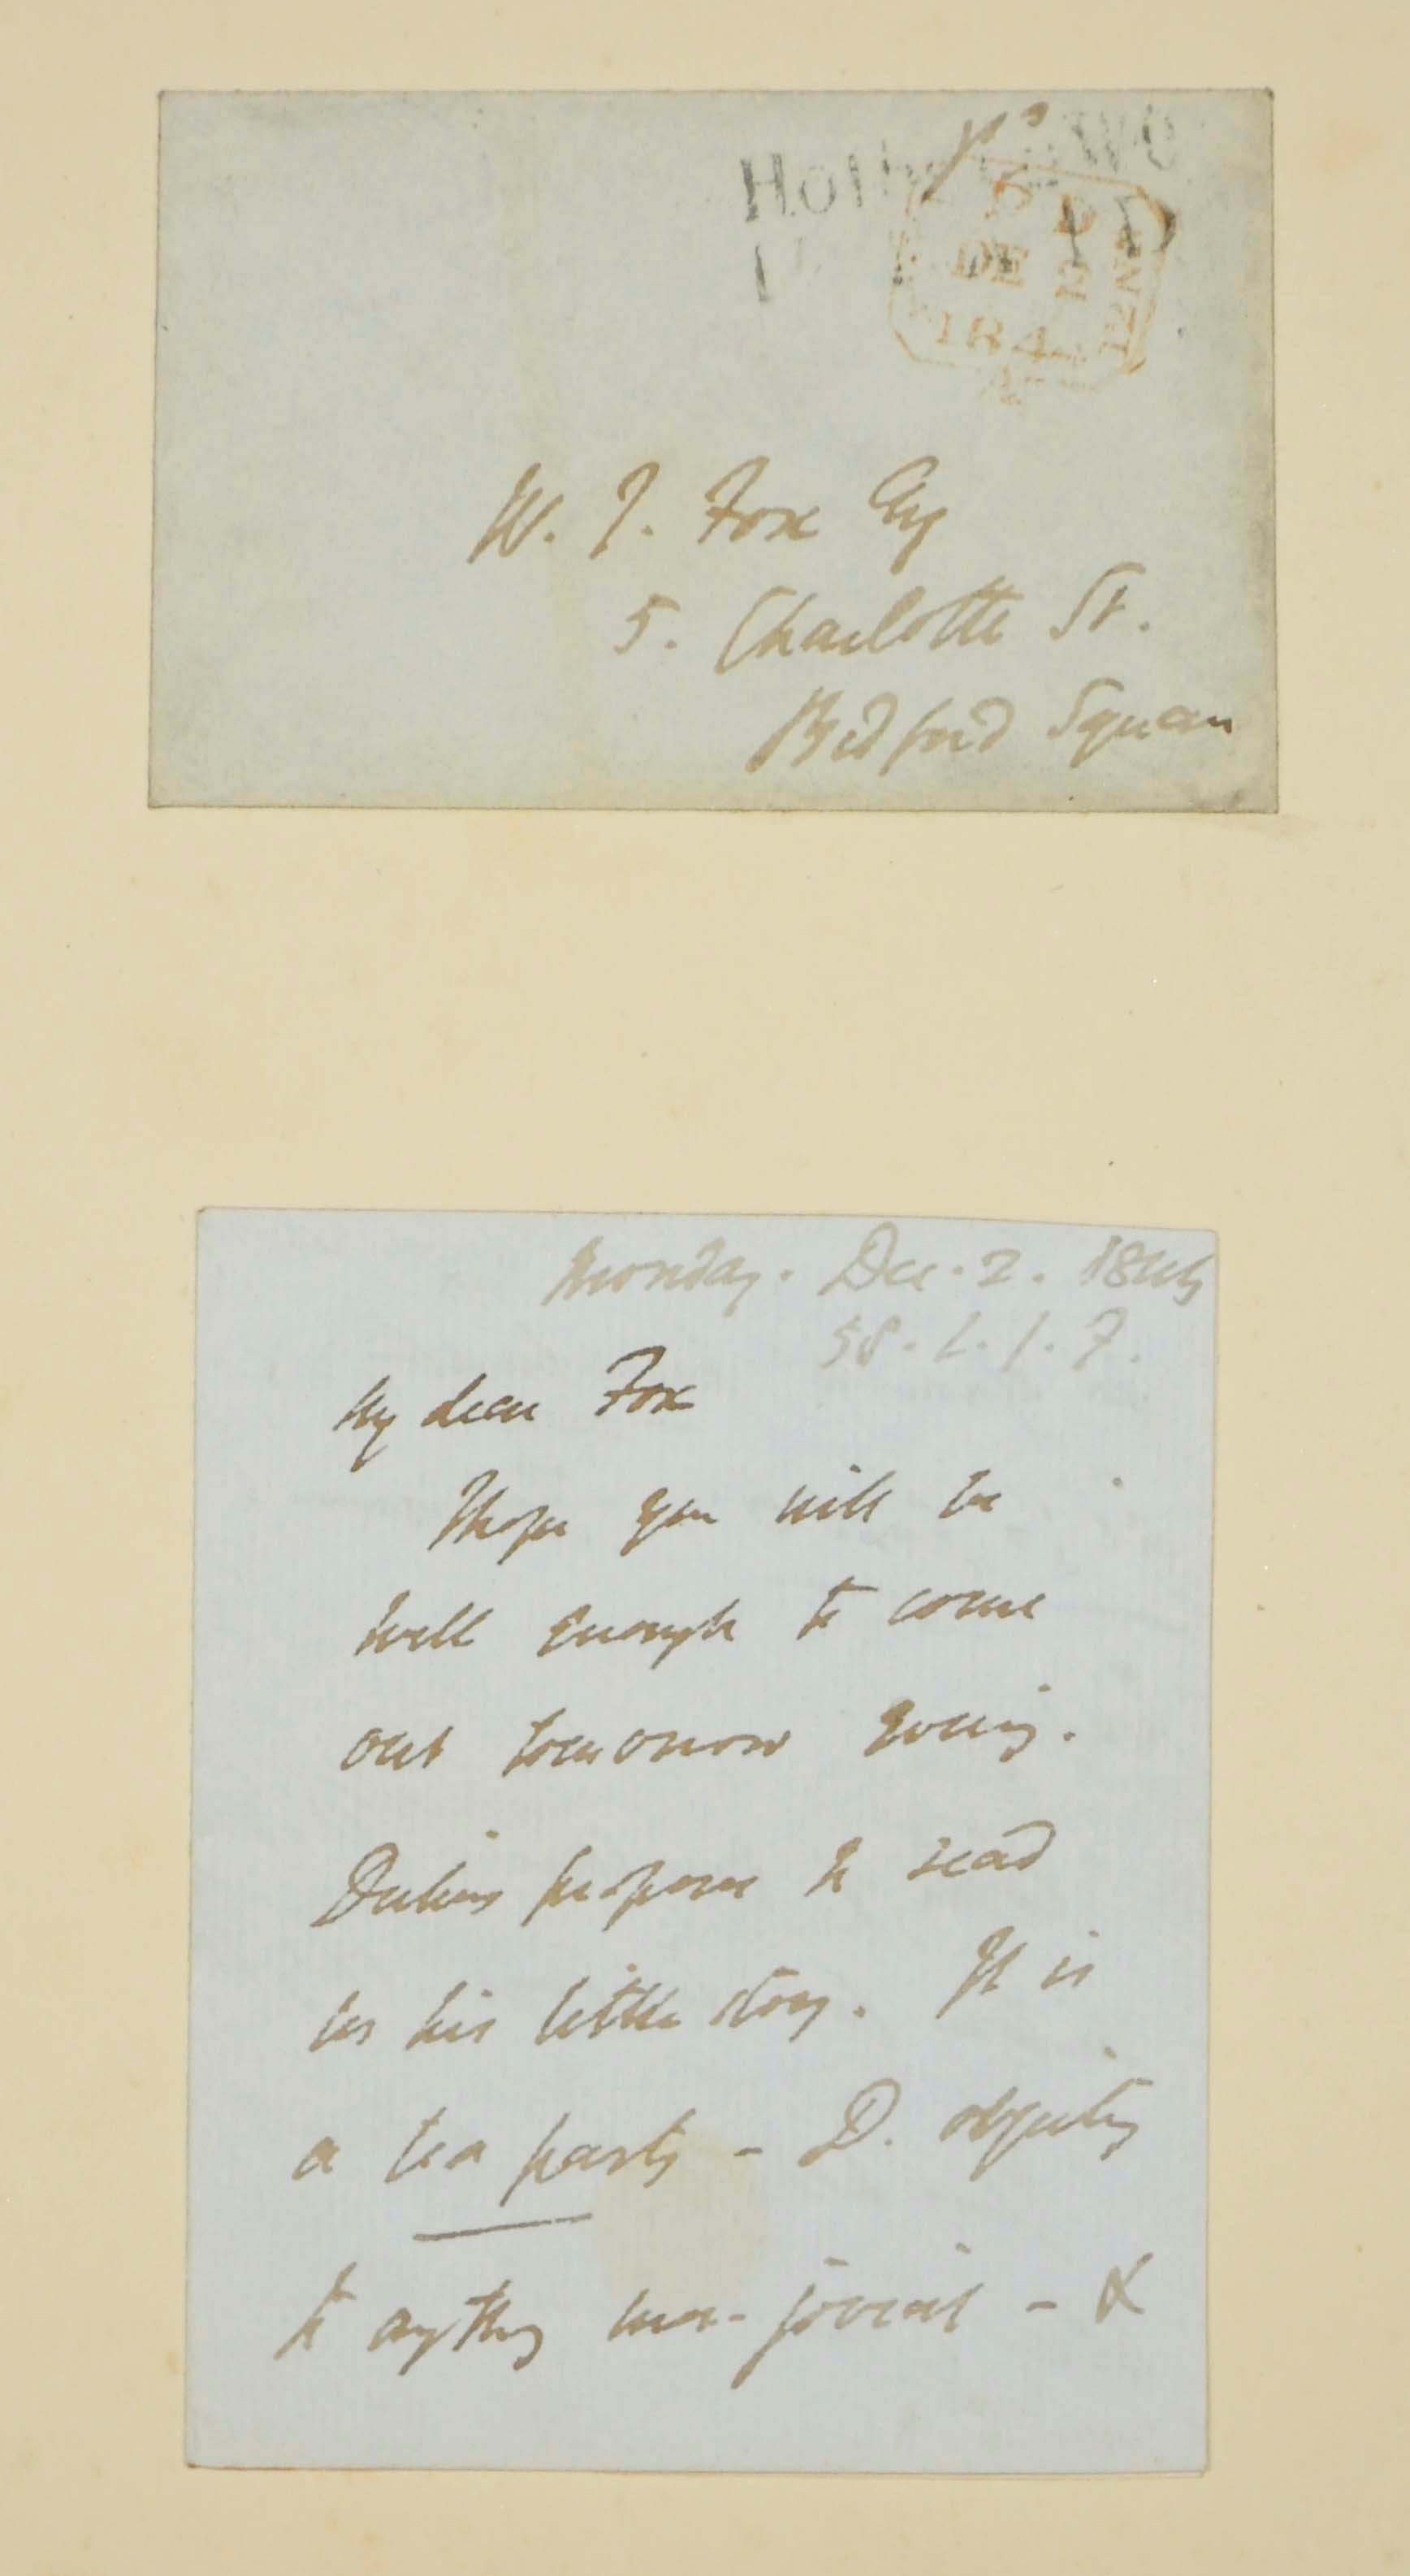 PD
DE 2
184
W. J. Fox Esq
5. Charlotte St.
Bedford Square
Monday. Dec. 2. 1844
58. L. I. F.
My dear Fox
I hope you will be
well enough to come
out tomorrow evening.
Dickens proposes to read
us his little story. It is
a tea party - D. objecting
to anything more jovial - &